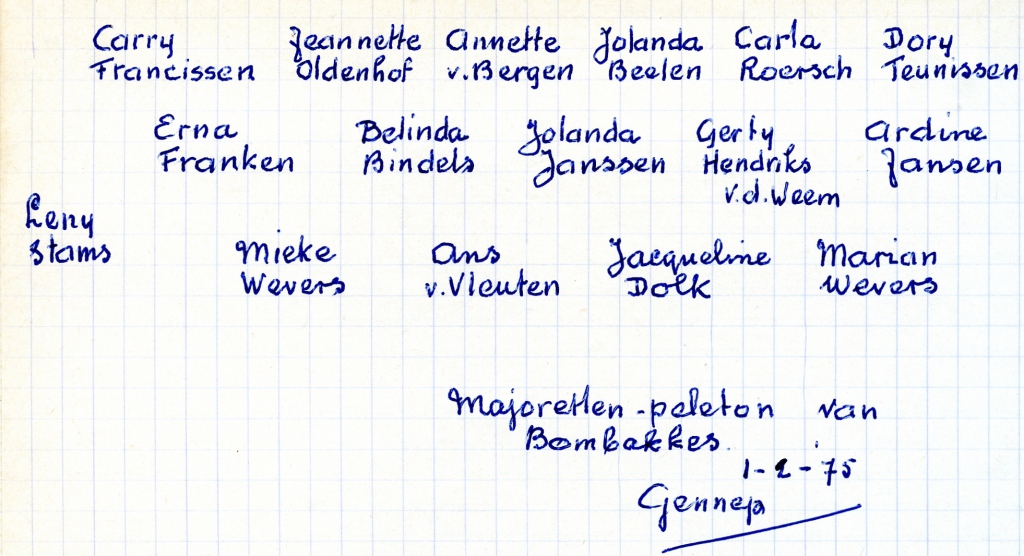 Carry Jeannette Annette Jolanda Carla Dory
Francissen Oldenhof v. Bergen Beelen Roersch Teunissen
Erna Belinda Jolanda Gerty Ardine
Franken Bindels Janssen Hendriks Jansen
v.d. Weem
Leny
Stams Mieke Ans Jacqueline Marian
Wevers v. Vleuten Dolk Wevers
Majoretten-peleton van
Bombakkes.
1-2-'75
Gennep